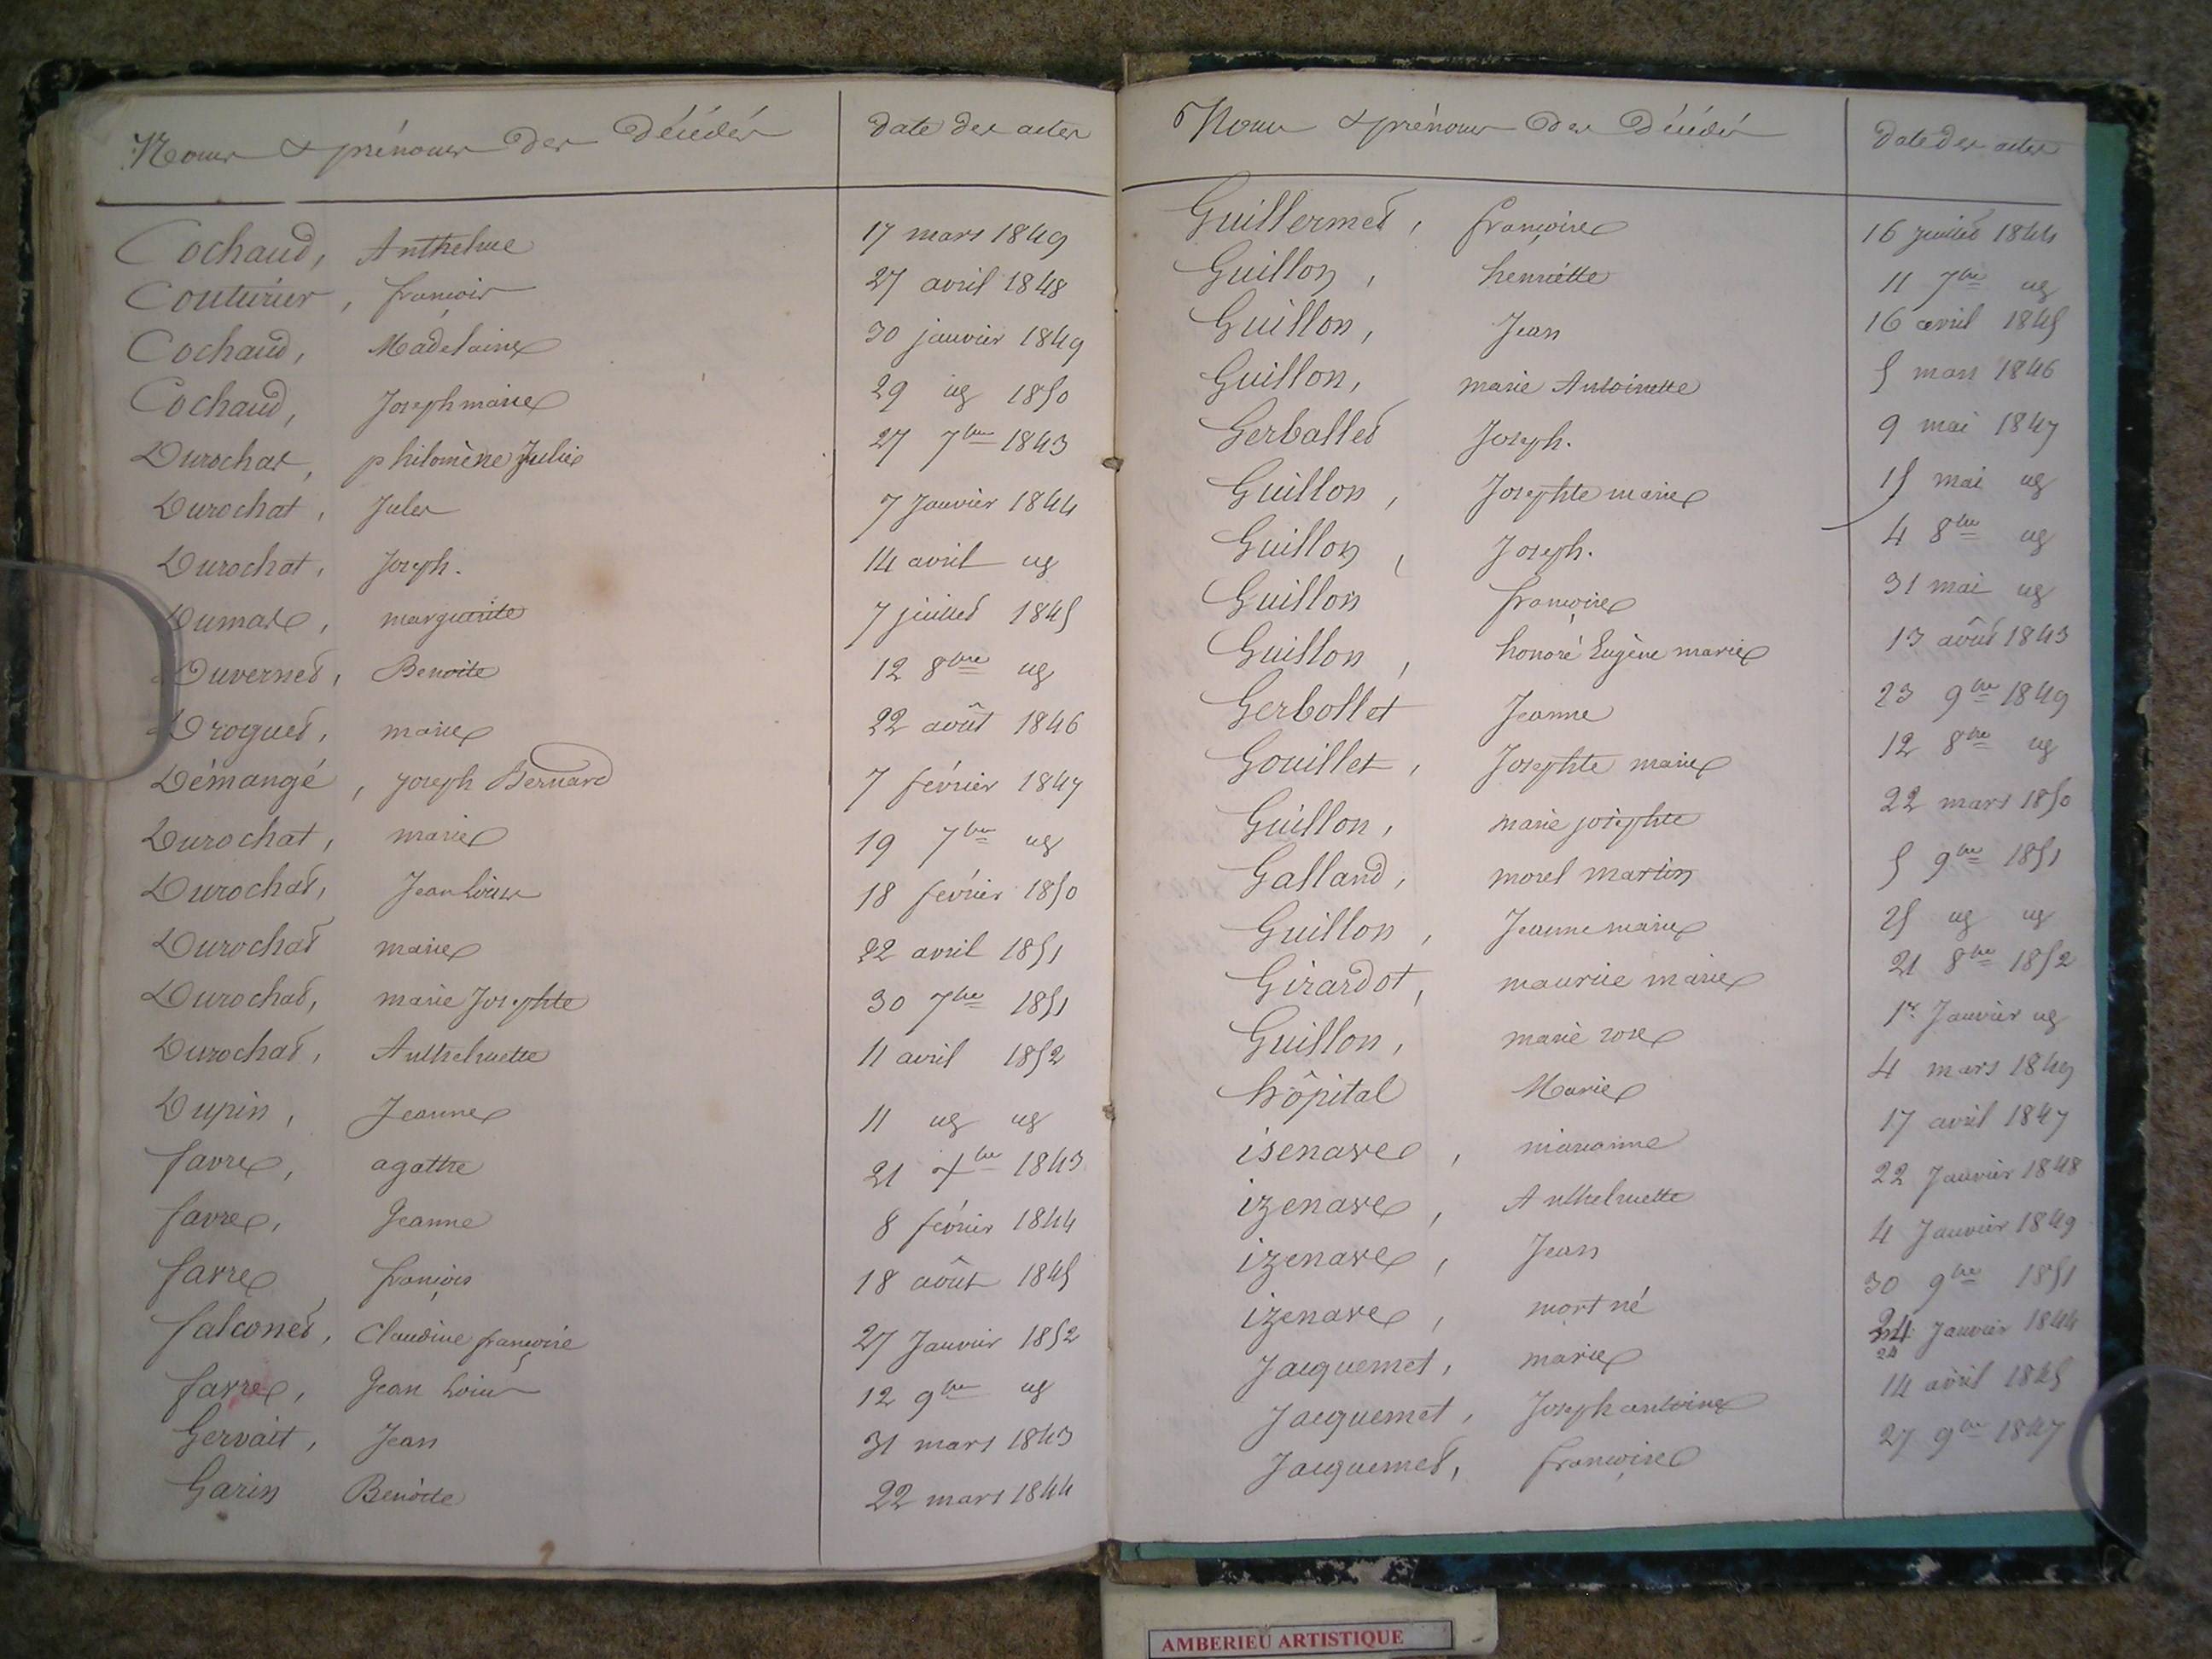 Noms & prénoms des Décédés Date des actes
Cochaud, Anthelme 17 mars 1849
Couturier, françois 27 avril 1848
Cochaud, Madelaine 30 janvier 1849
Cochaud, Joseph marie 29 id 1850
Durochat, philomène Julie 27 7bre 1843
Durochat, Jules 7 Janvier 1844
Durochat, Joseph. 14 avril id
Dumas, marguerite 7 juillet 1845
Duvernet, Benoite 12 8bre id
Droguet, marie 22 août 1846
Démangé, Joseph Bernard 7 février 1847
Durochat, marie 19 7bre id
Durochat, Jean Louis 18 février 1850
Durochat marie 22 avril 1851
Durochat, marie Josephte 30 7bre 1851
Durochat, Anthelmette 11 avril 1852
Dupin, Jeanne 11 id id
favre, agathe 21 bre 1843
favre, Jeanne 8 février 1844
favre, françois 18 août 1845
falconet, Claudine françoise 27 Janvier 1852
favre, Jean Louis 12 9bre id
Gervait, Jean 31 mars 1843
Garin Benoite 22 mars 1844
Noms & prénoms des Décédés Date des actes
Guillermet, françoise 16 juillet 1844
Guillon, henriette 11 7bre id
Guillon, Jean 16 avril 1845
Guillon, marie Antoinette 5 mars 1846
Gerballet Joseph. 9 mai 1847
Guillon, Josephte marie 15 mai id
Guillon, Joseph. 4 8bre id
Guillon françoise 31 mai id
Guillon, honoré Eugène marie 13 août 1843
Gerbollet Jeanne 23 9bre 1849
Gouillet, Josephte marie 12 8bre id
Guillon, marie josephte 22 mars 1850
Galland, morel martin 5 9bre 1851
Guillon, Jeanne marie 25 id id
Girardot, maurice marie 21 8bre 1852
Guillon, marie rose 1r Janvier id
hôpital Marie 4 mars 1849
isenave, marianne 17 avril 1847
izenave, Anthelmette 22 Janvier 1848
izenave, Jean 4 Janvier 1849
izenave, mort né 30 9bre 1851
Jacquemet, marie 24 Janvier 1844
24
Jacquemet, Joseph antoine 14 avril 1845
Jacquemet, françoise 27 9bre 1847
AMBERIEU ARTISTIQUE